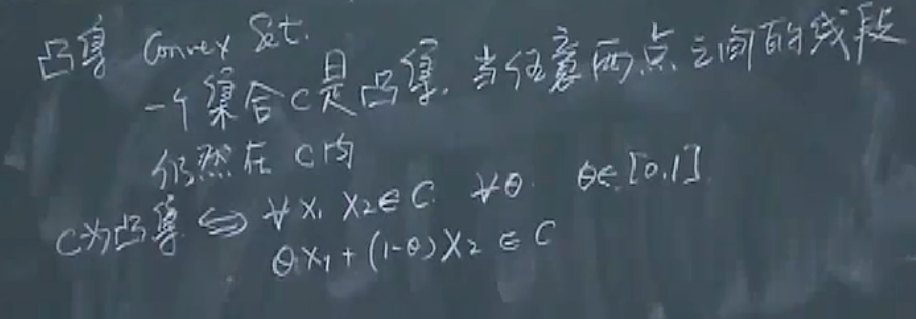 凸集 Convex Set.
一个集合C是凸集,当任意两点之间的线段
仍然在C内
C为凸集 ⇔ ∀ x₁ x₂ ∈ C ∀θ θ∈[0,1]
θx₁+(1-θ)x₂ ∈ C